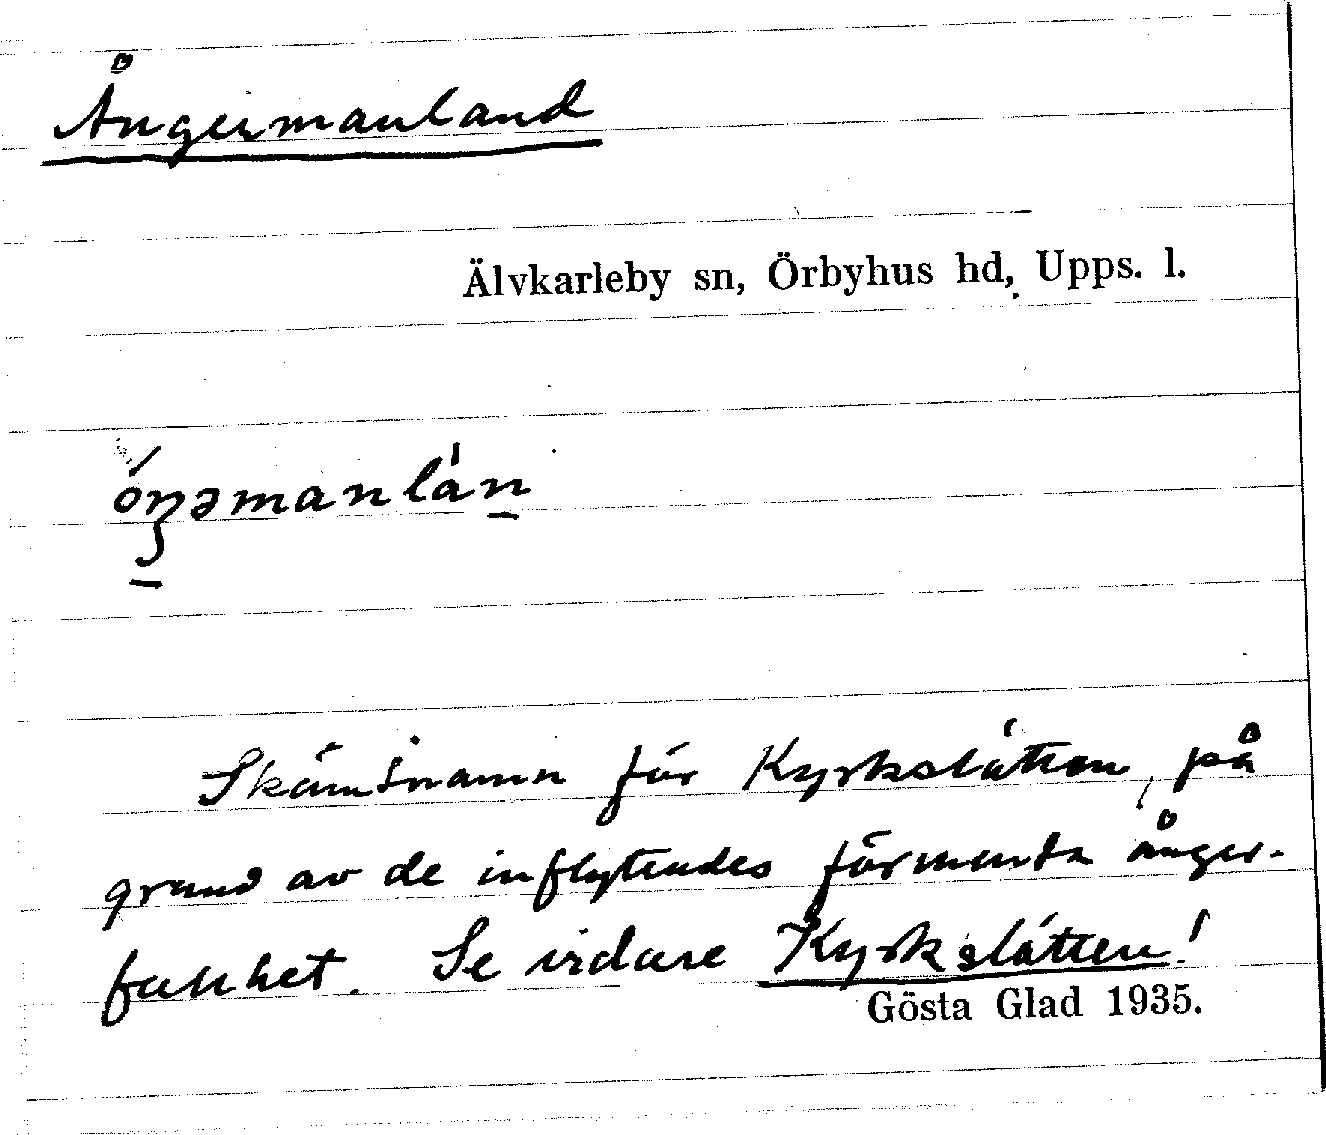 Ångermanland
Älvkarleby sn, Örbyhus hd, Upps. l.
óŋəmanlán
Skämtnamn för Kyrkslätten, på
grund av de inflyttades förmenta ånger-
fullhet. Se vidare Kyrkslätten!
Gösta Glad 1935.